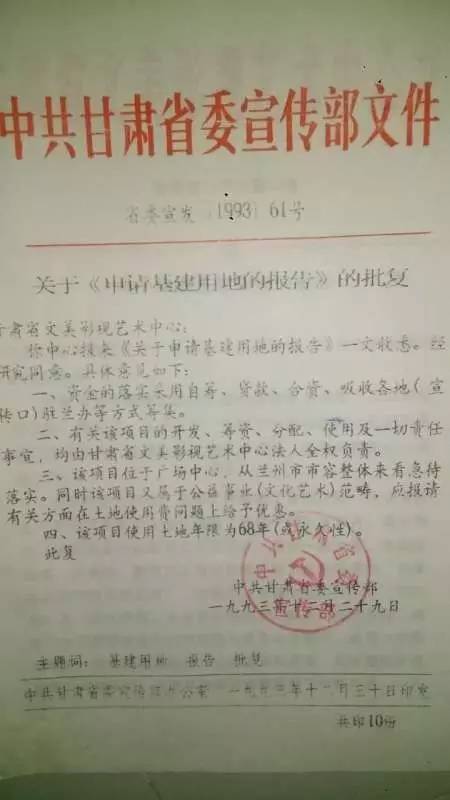 中共甘肃省委宣传部文件
省委宣发〔1993〕61号
关于《申请基建用地的报告》的批复
甘肃省文美影视艺术中心:
你中心报来《关于申请基建用地的报告》一文收悉。经
研究同意。具体意见如下:
一、资金的落实采用自筹、贷款、合资、吸收各地(宣
传口)驻兰办等方式筹集。
二、有关该项目的开发、筹资、分配、使用及一切责任
事宣,均由甘肃省文美影视艺术中心法人全权负责。
三、该项目位于广场中心,从兰州市市容整体来看急待
落实。同时该项目又属于公益事业(文化艺术)范畴,应报请
有关方面在土地使用费问题上给予优惠。
四、该项目使用土地年限为68年(或永久性)。
此复
中共甘肃省委宣传部
一九九三年十二月二十九日
主题词: 基建用地 报告 批复
中共甘肃省委宣传部办公室 一九九三年十二月三十日印发
共印10份